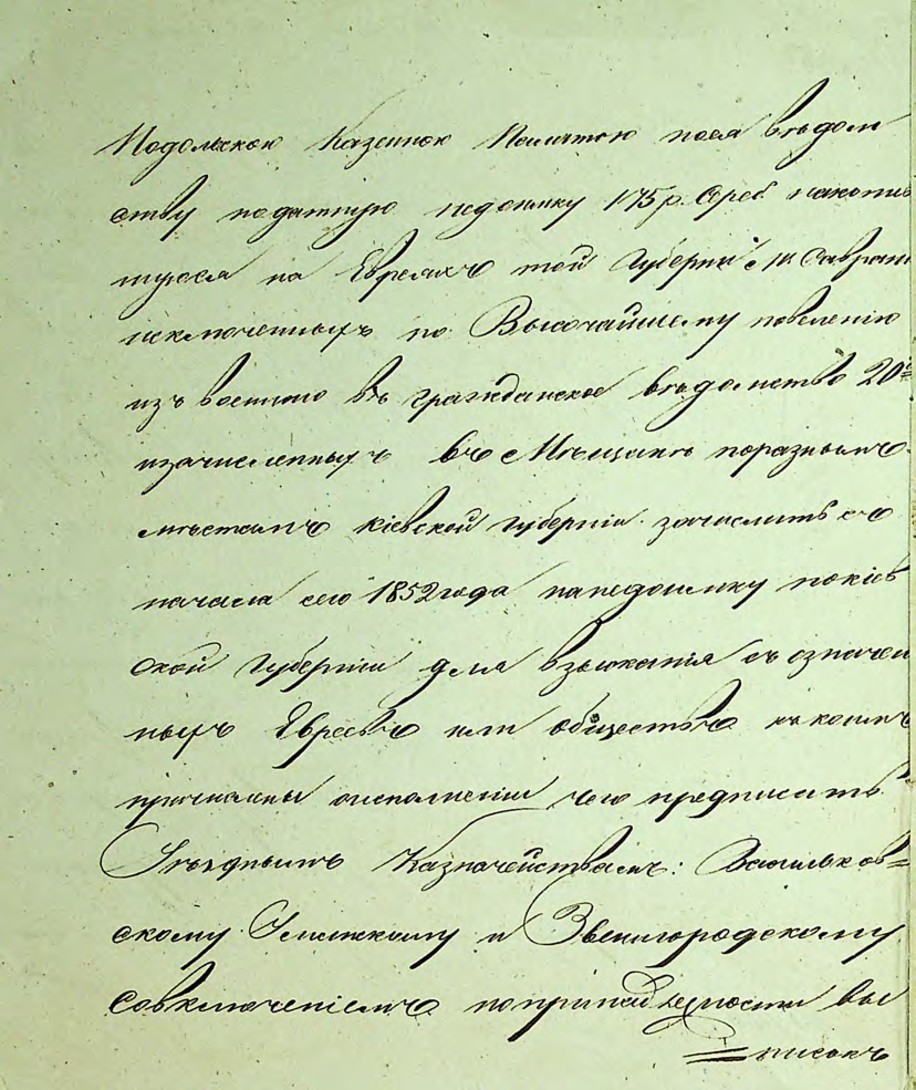 Подольскою Казенною Палатою посл ведом
ству податную недоимку 175 р. Сереб. накопив
шуюся на Евреяхъ той Губерніи м. Саврани
исключенныхъ по Высочайшему повеленію
изъ военнаго въ гражданское вѣдомство 20=
изачисленныхъ въ Мѣщане поразнымъ
мѣстамъ Кіевской Губерніи зачислить съ
начала сего 1852 года на недоимку покіев
ской Губерніи для взысканія съ означен
ныхъ Евреевъ или обществъ къ коимъ
причислены оисполненіи чего предписать
Уѣзднымъ Казначействамъ: Васильков=
скому Уманскому и Звенигородскому
Совключеніемъ попринадлежности вы
= писокъ